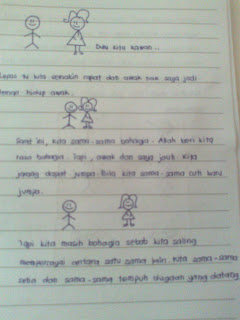 Dulu kita kawan...
Lepas tu kita semakin rapat dan awak nak saya jadi
teman hidup awak.
Saat ini, kita sama-sama bahagia. Allah beri kita
rasa bahagia. Tapi, awak dan saya jauh. Kita
jarang dapat jumpa. Bila kita sama-sama cuti baru
jumpa.
Tapi kita masih bahagia sebab kita saling
mempercayai antara satu sama lain. Kita sama-sama
setia dan sama-sama tempuh dugaan yang datang